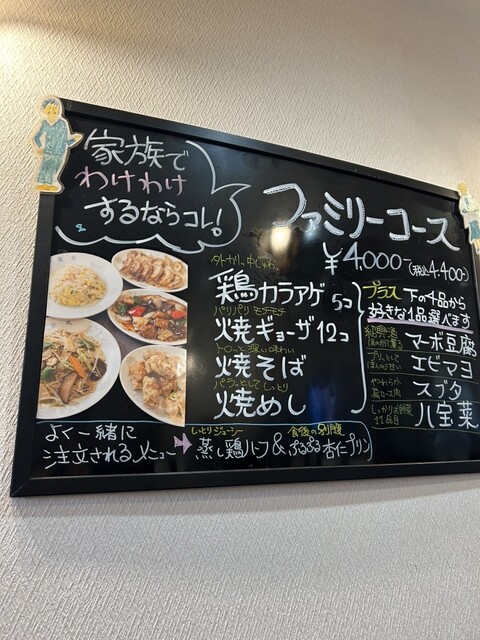 家族で
わけわけ
するならコレ!
ファミリーコース
¥4,000-(税込4,400-)
外カリッ 中じゅわっ
鶏カラアゲ 5コ
パリパリ モチモチ
焼ギョーザ 12コ
トローッと深い味わい
焼そば
パラっとして しっとり
焼めし
プラス 下の4品から
好きな1品選べます
紹興酒
マーボ豆腐
プリッとして
ほんのり甘い
エビマヨ
やわらか
スブタ
11品目
八宝菜
よく一緒に
注文されるメニュー
しっとりジューシー
蒸し鶏ハーフ&
食後の別腹
ぷるぷる杏仁プリン